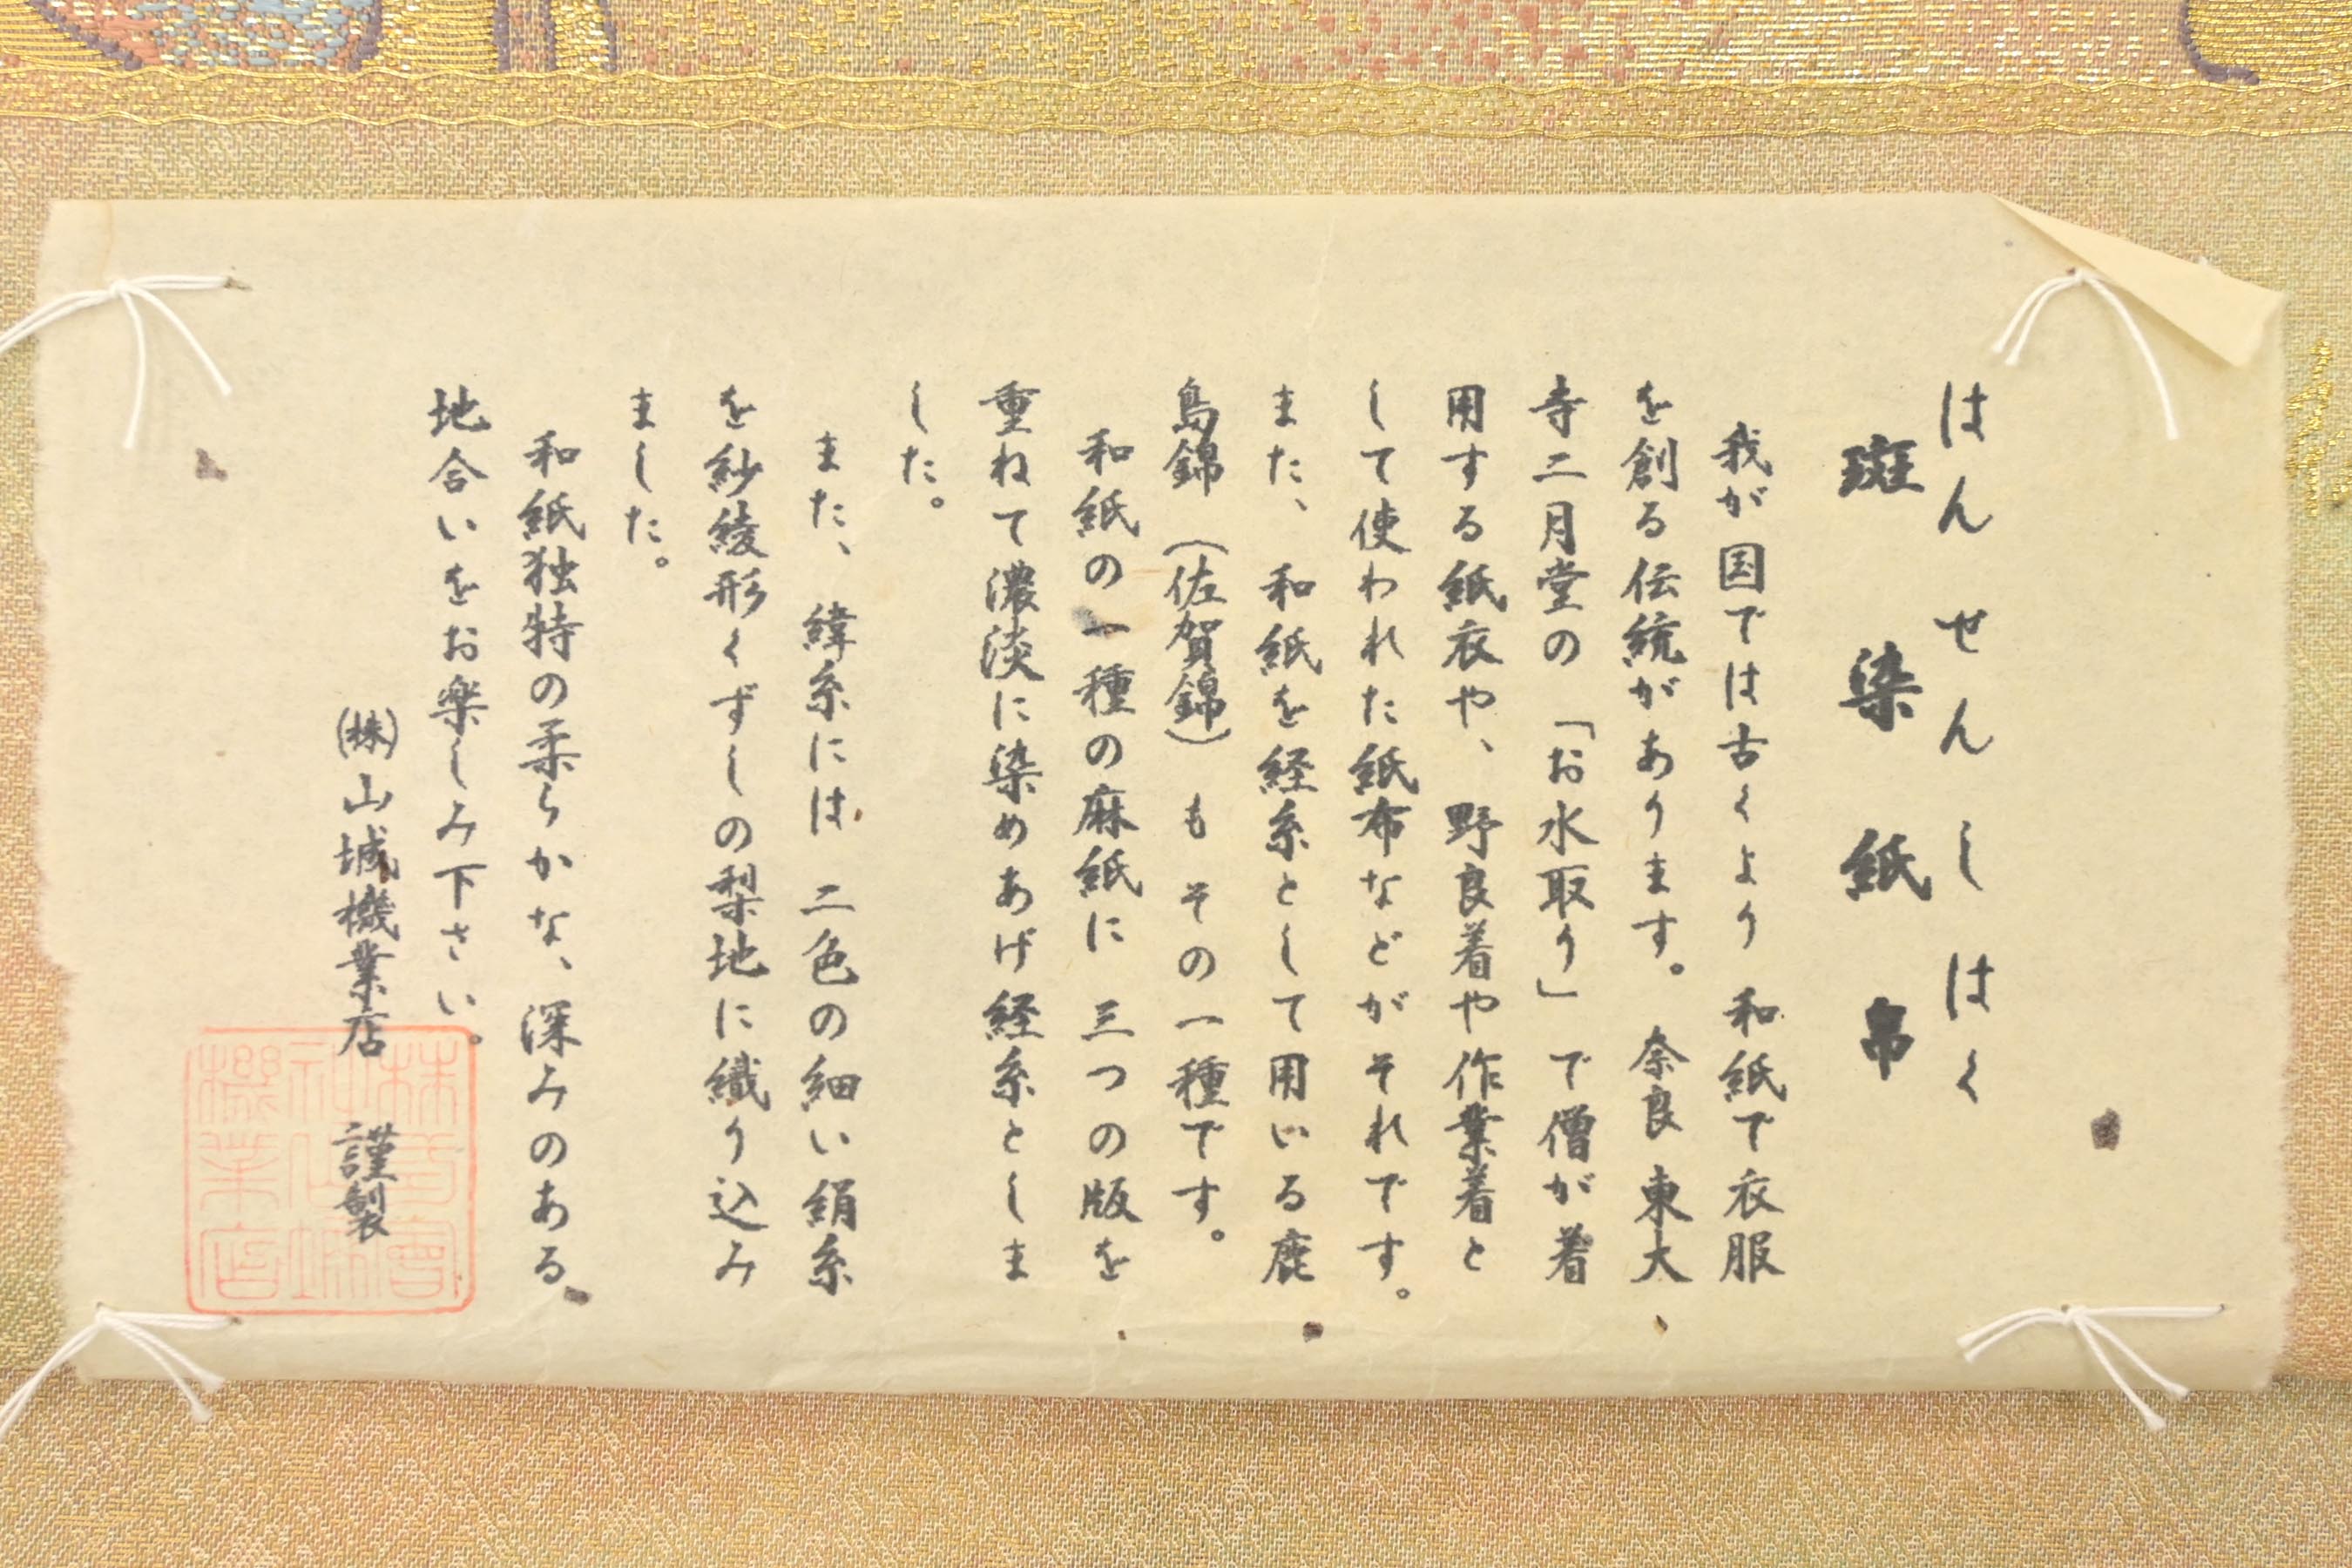 はんせんしはく
斑染紙帛
我が国では古くより和紙で衣服
を創る伝統があります。奈良東大
寺二月堂の「お水取り」で僧が着
用する紙衣や、野良着や作業着と
して使われた紙布などがそれです。
また、和紙を経糸として用いる鹿
島錦（佐賀錦）もその一種です。
和紙の一種の麻紙に三つの版を
重ねて濃淡に染めあげ経糸としま
した。
また、緯糸には二色の細い絹糸
を紗綾形くずしの梨地に織り込み
ました。
和紙独特の柔らかな、深みのある
地合いをお楽しみ下さい。
㈱山城機業店 謹製
株式會
社山城
機業店